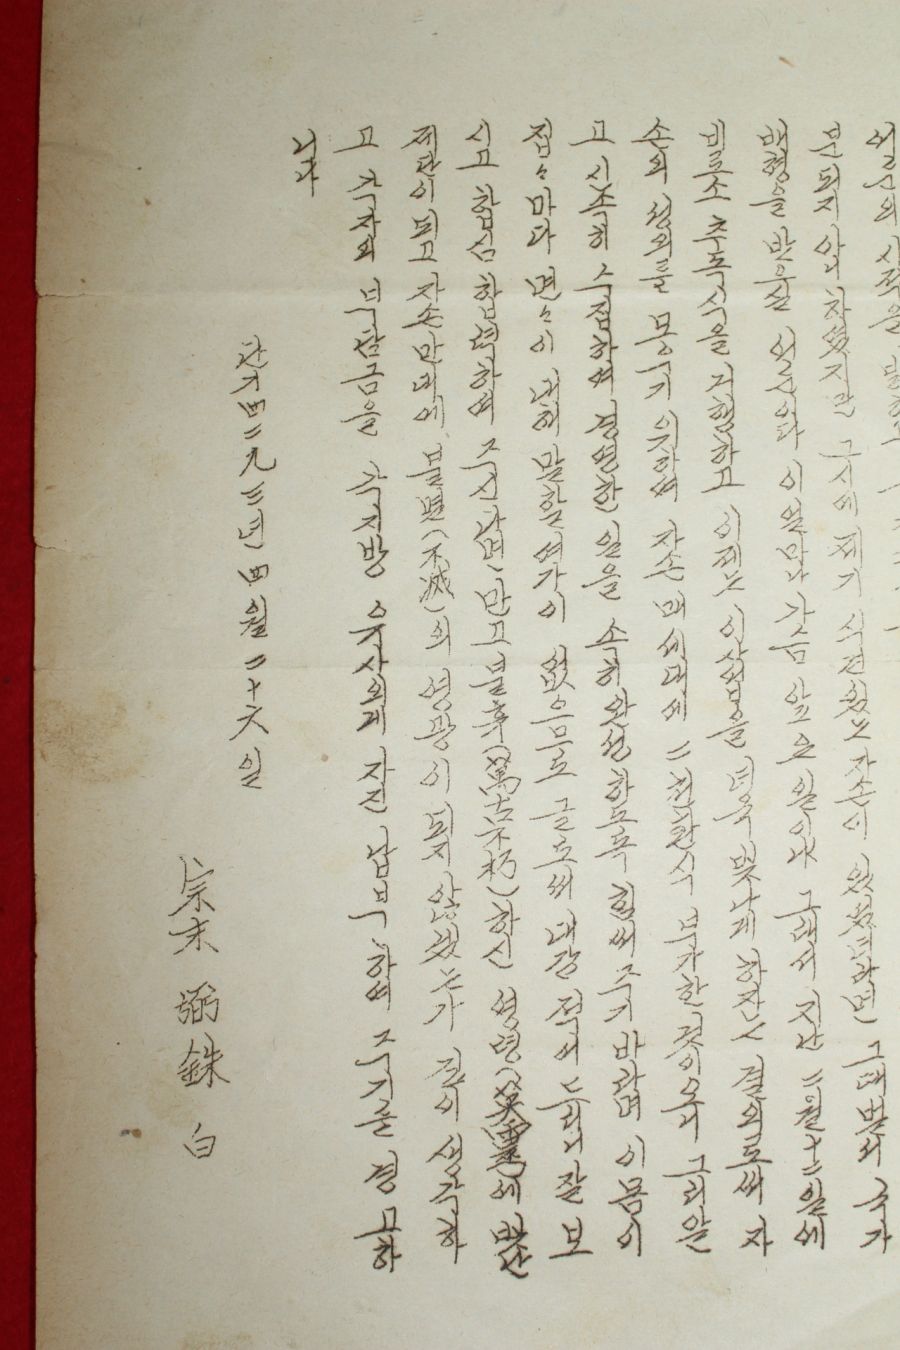 분되지 아니 하였지만 구시에 제기 식견있는 자손이 있었더라면 그때 벌써 국가
배형을 받으실 선조외다 이 얼마나 가슴 앞으 일이냐 그래서 지난 三월 十二일에
비로소 추모식을 거행하고 이제는 이 사업을 더욱 빛나게 하자는 결의로써 자
손의 성의를 뭉구기 위하여 자손 매세대에 二천환식 부가한 것이오니 그리 알
고 시속히 수집하여 경변한 일을 속히 완성하도록 힘써 주기 바라며 이몸이
접々마다 면々이 내해 말할 여가이 없으므로 글로써 대강 적어 드리니 잘 보
시고 합심 합력하여 주신다면 만고불후(萬古不朽)하신 영명(英靈)에
제관이 되고 자손만대에 불멸(不滅)의 영광이 되지 않겠는가 깊이 생각하
고 각자의 부담금을 각지방 유사의게 자진 납부하여 주기를 경고하
니다
단기 四二九三년 四월 二十六일
宗末 弼銖 白